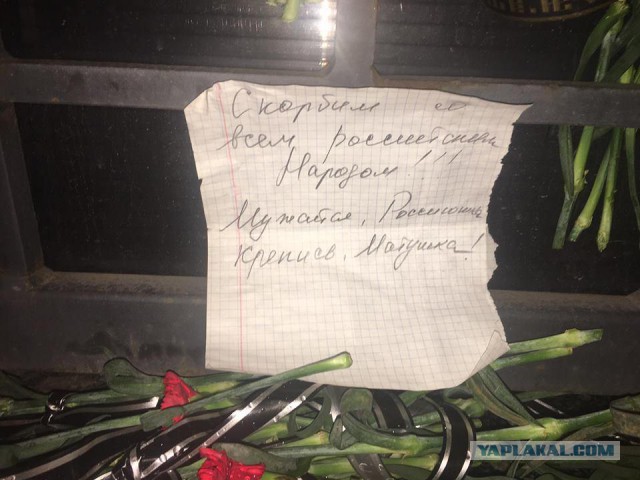 Скорбим со
всем российским
Народом!!!
Мужайся, Россиюшка
Крепись, Матушка!
YAPLAKAL.COM